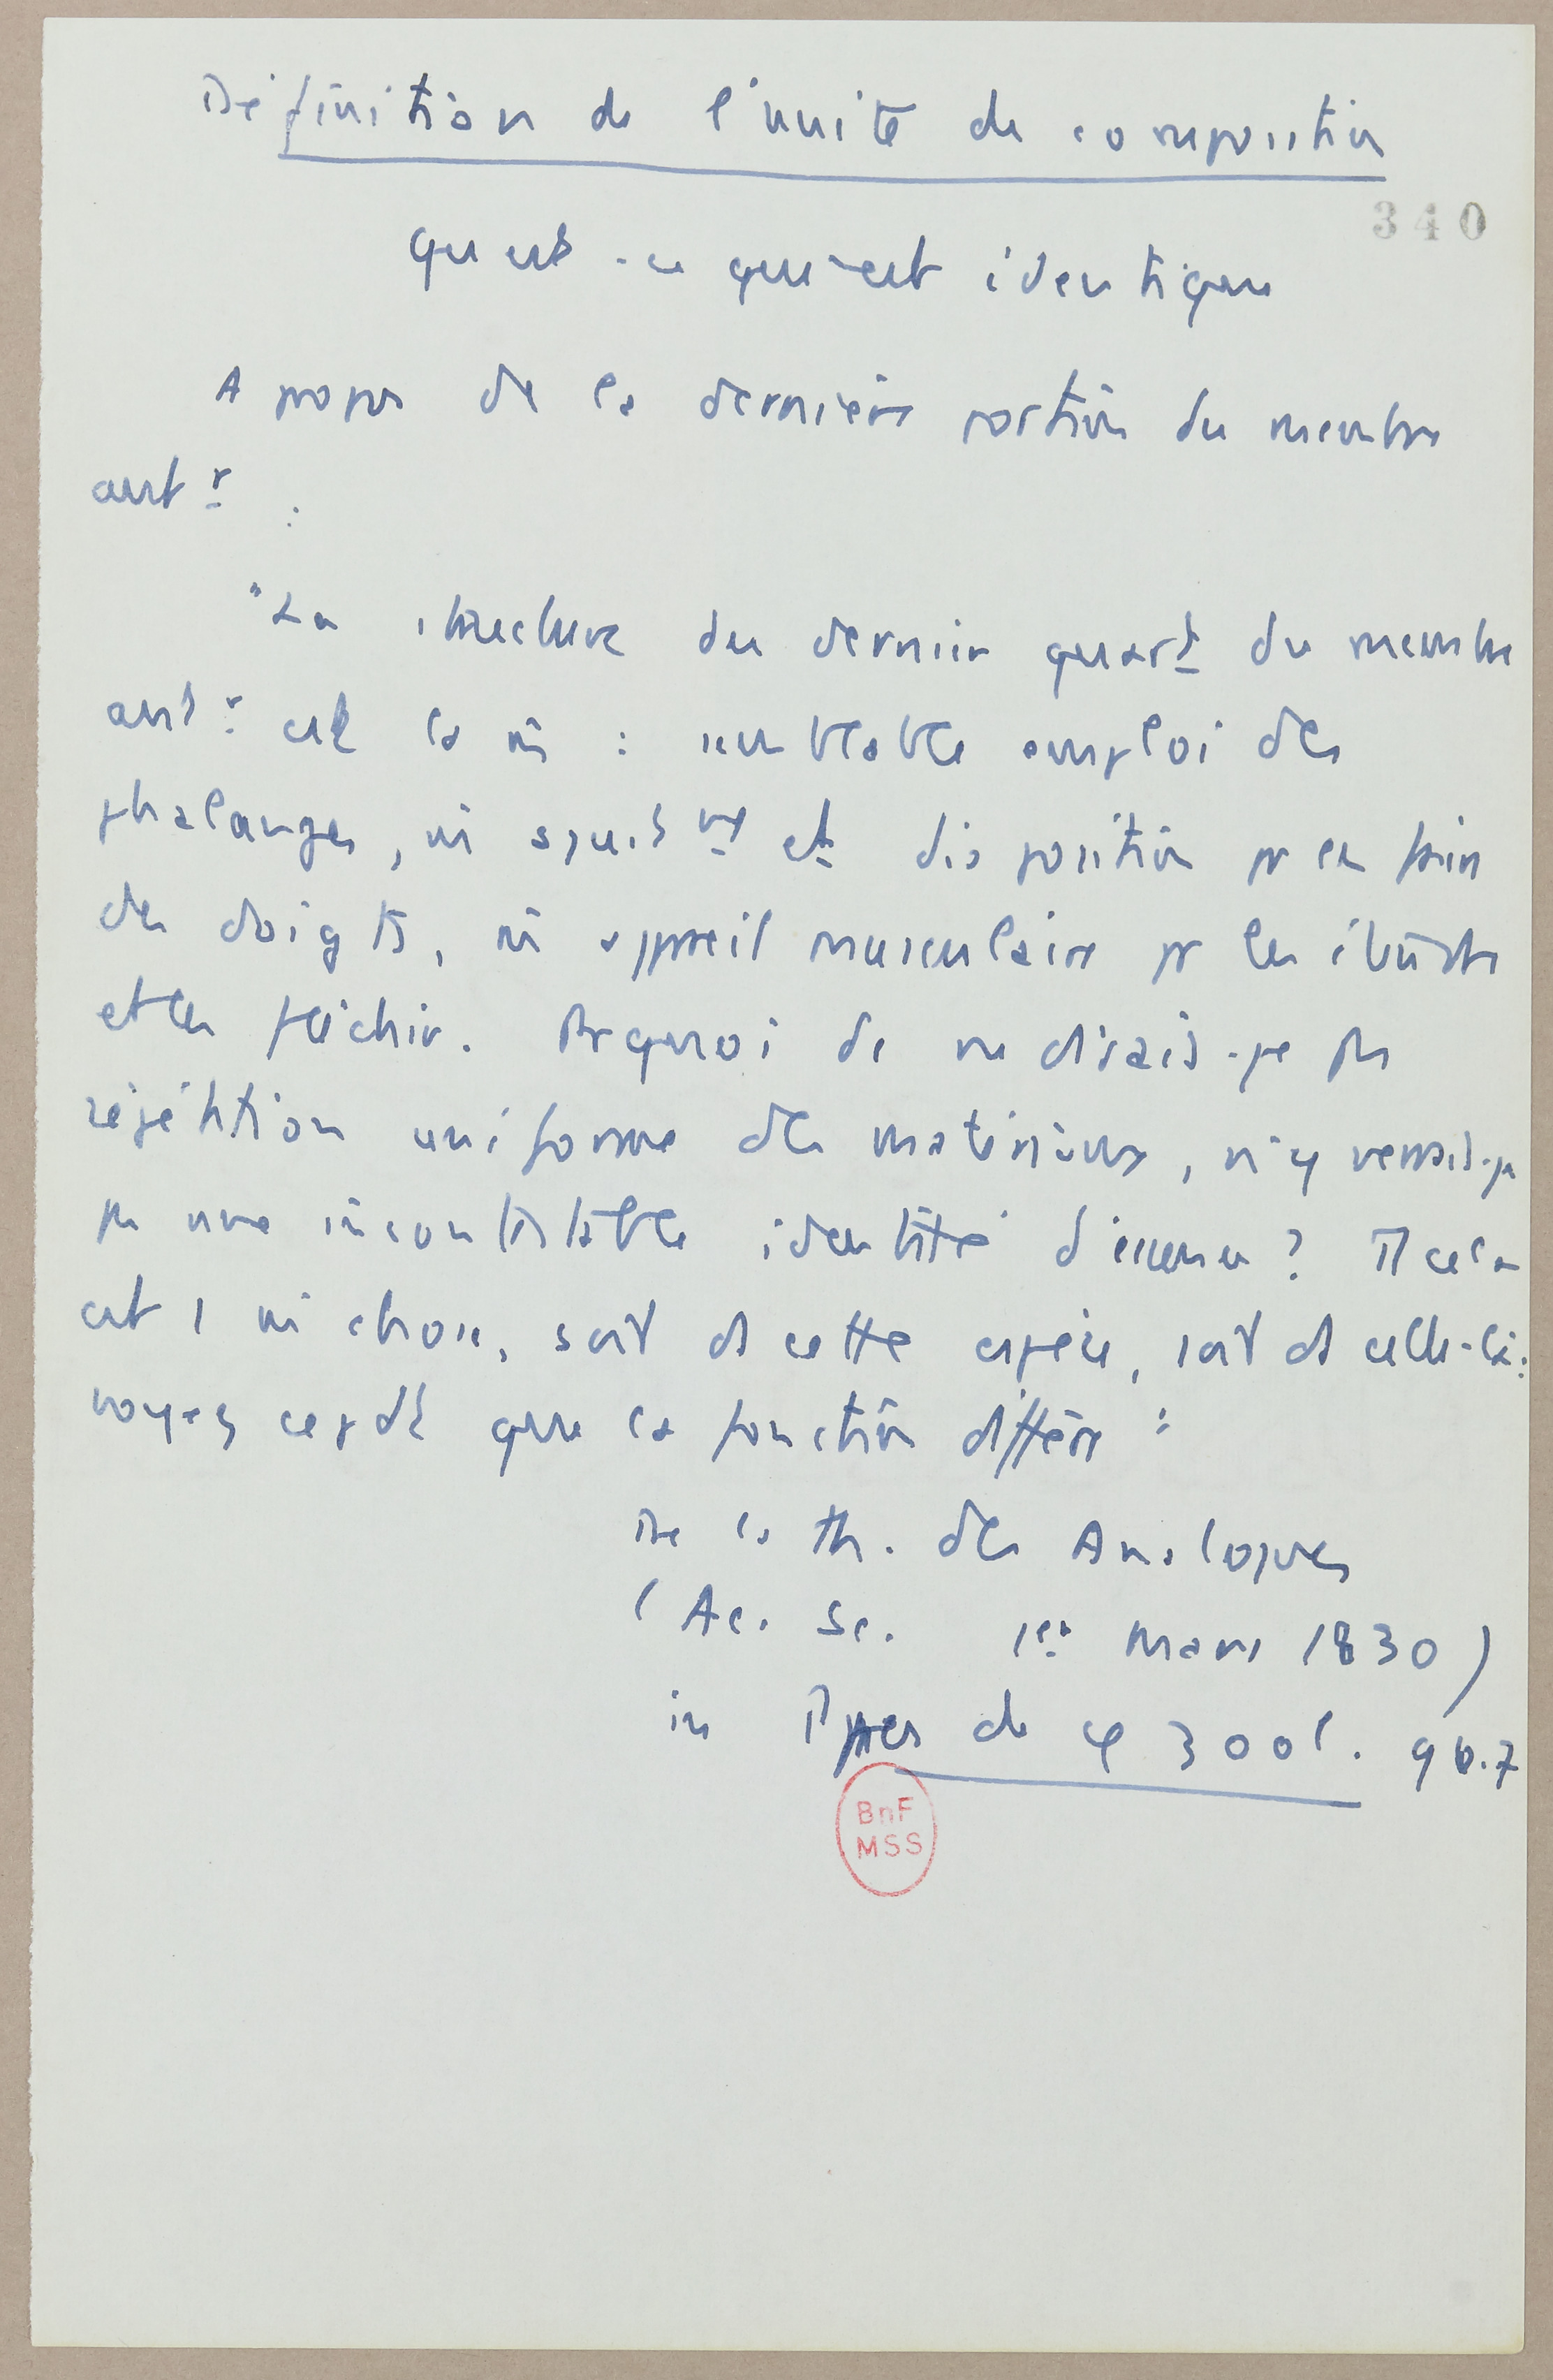 Définition de l'unité de composition
340
Qu'est-ce qui est identique
A propos de la dernière portion du membre
antr :
"La structure du dernier quart du membre
antr est la m̂ : semblable emploi des
phalanges, m̂ et disposition pr la
des doigts, m̂ appareil musculaire pr les étendre
et les fléchir. Prquoi ds ne dirais-je pas
répétition uniforme des matériaux, n'y verrais-je
pas une incontestable identité d'essence ? Tt cela
est 1 m̂ chose, soit ds cette espèce, soit ds celle-là :
voyez cepdt que la fonction diffère"
De la th. des Analogues
(Ac. Sc. 1er Mars 1830)
in Ppes de φ zool. 96.7
BnF
MSS